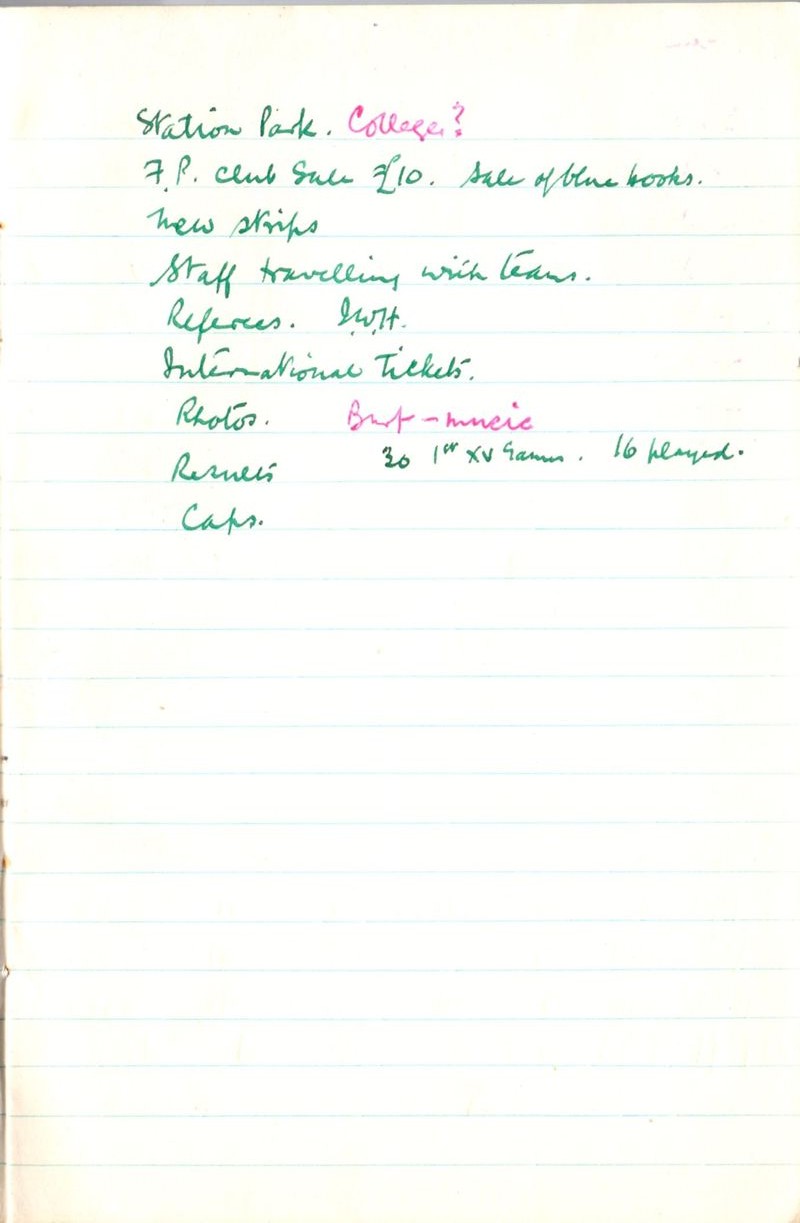 Station Park. College?
F.P. club Sale £10. Sale of blue books.
New strips
Staff travelling with teams.
Referees. I.W.H.
International Tickets.
Photos. - music
Results 30 1st XV Games. 16 played.
Caps.